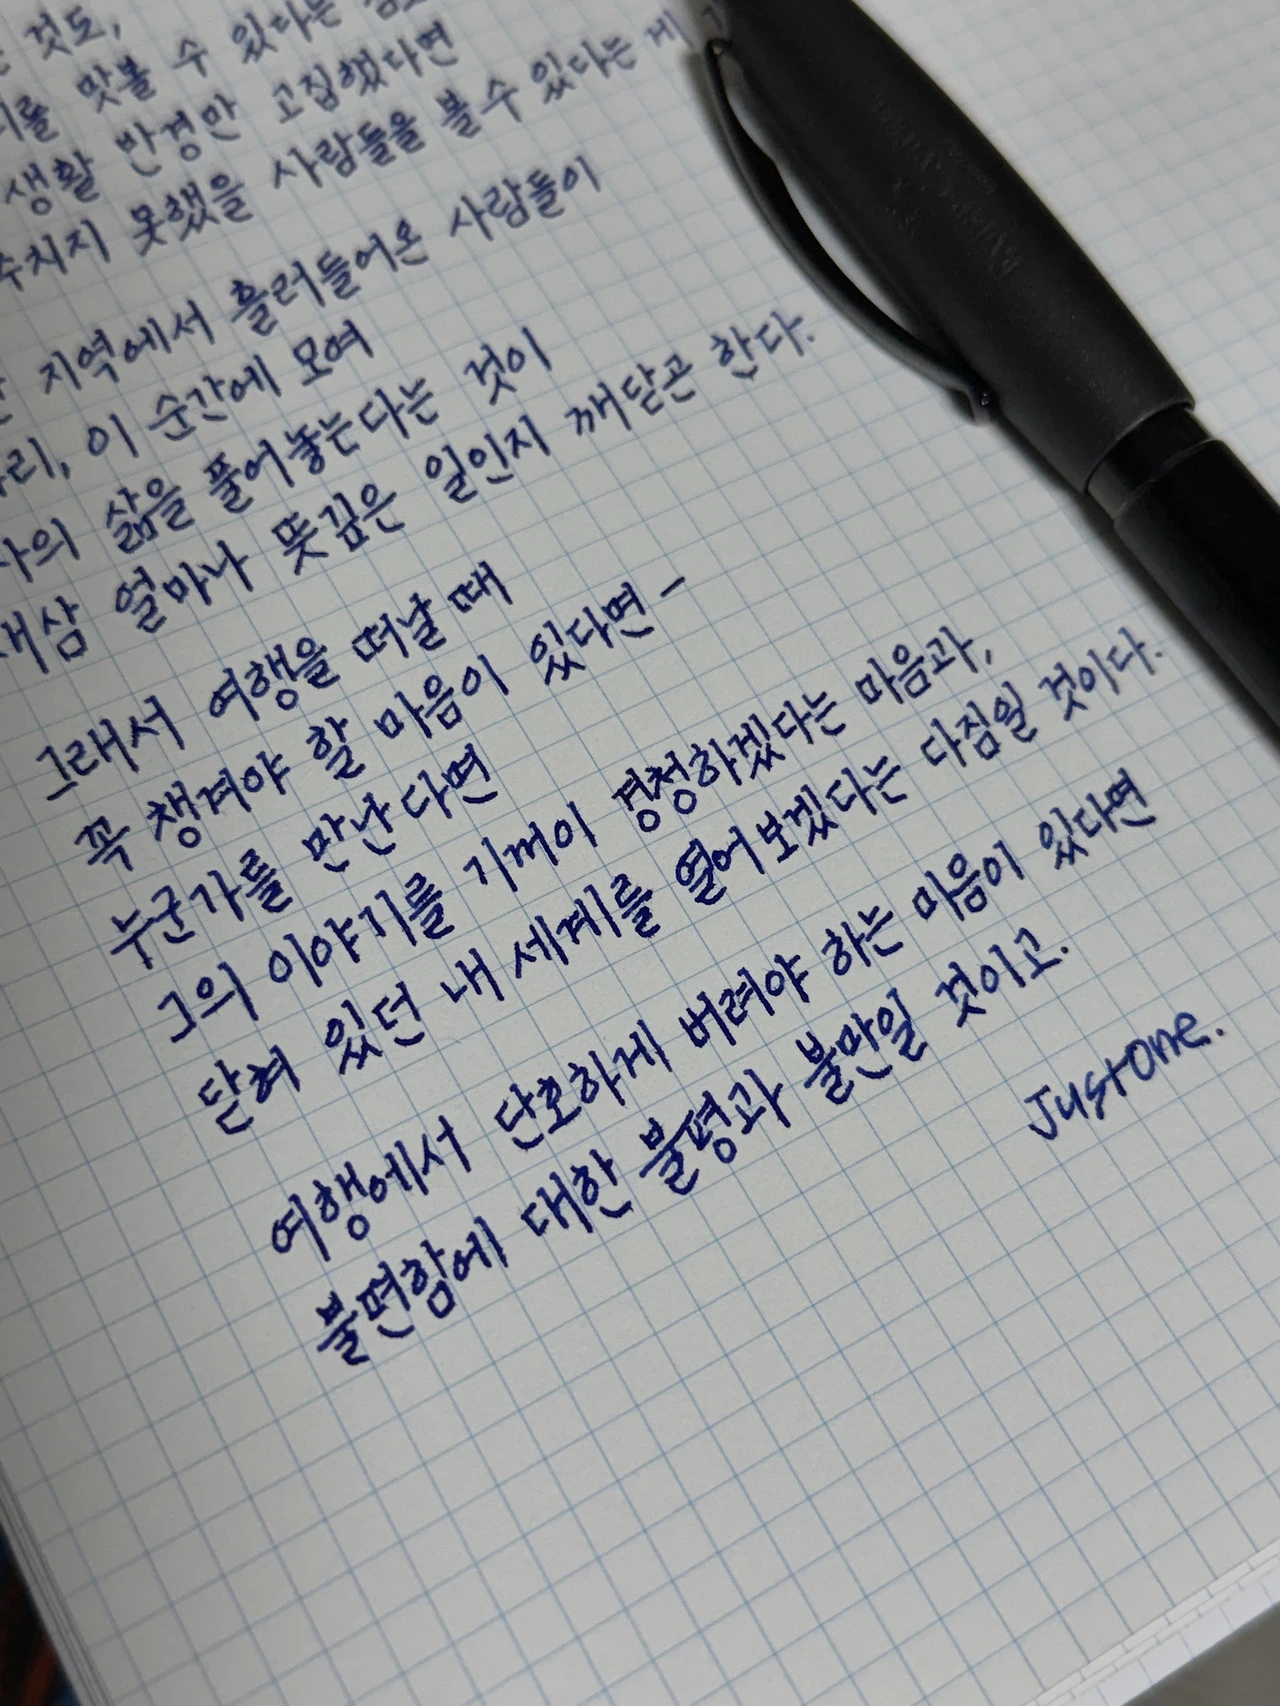 것도,
맛볼 수 있다는
생활 반경만 고집했다면
못했을 사람들을 볼 수 있다는 게
지역에서 흘러들어온 사람들이
이 순간에 모여
삶을 풀어놓는다는 것이
얼마나 뜻깊은 일인지 깨닫곤 한다.
그래서 여행을 떠날 때
꼭 챙겨야 할 마음이 있다면 -
누군가를 만난다면
그의 이야기를 기꺼이 경청하겠다는 마음과,
닫혀 있던 내 세계를 열어보겠다는 다짐일 것이다.
여행에서 단호하게 버려야 하는 마음이 있다면
불편함에 대한 불평과 불만일 것이고.
Justone.